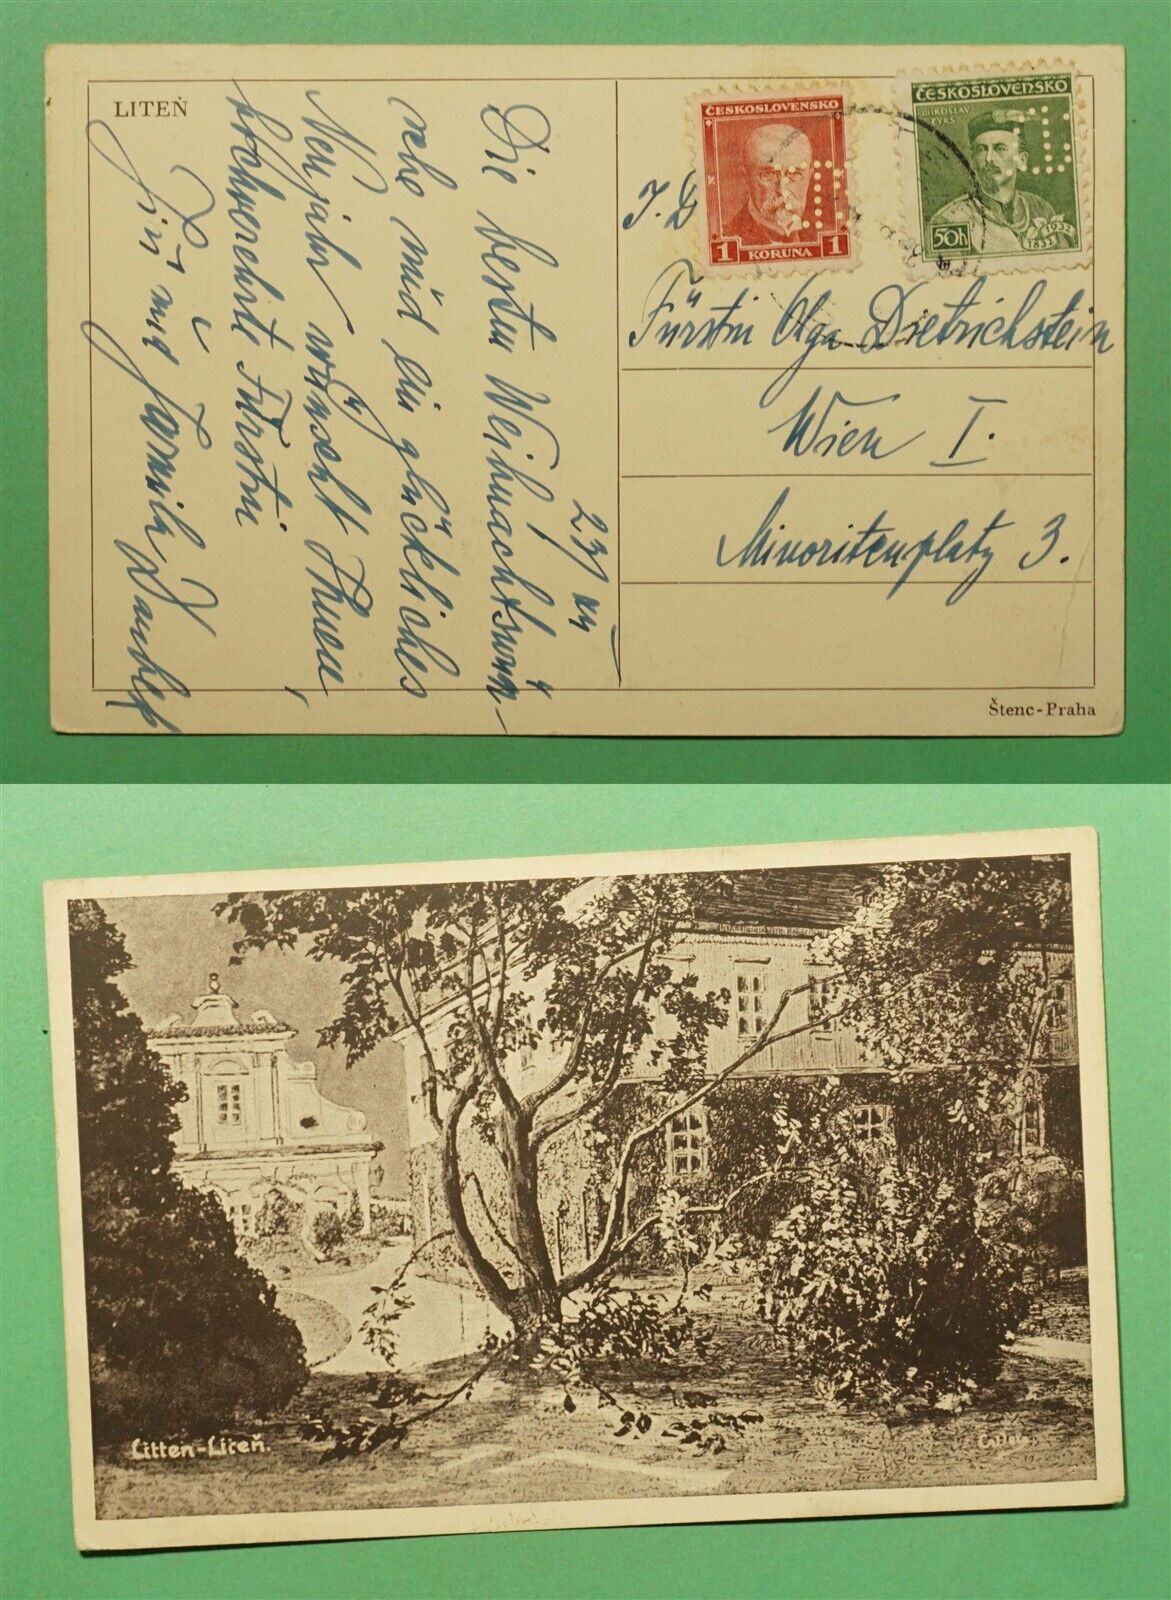 LITEŇ
23/XII
Die besten Weihnachtswün-
sche und ein glückliches
Neujahr wünscht Ihnen,
hochverehrte Fürstin
Jiři und
ČESKOSLOVENSKO
1 KORUNA 1
ČESKOSLOVENSKO
MIROSLAV
TYRŠ
50h
1932
1832
J. D
Fürstin Olga Dietrichstein
Wien I.
Minoritenplatz 3.
Štenc-Praha
Litten-Liteň.